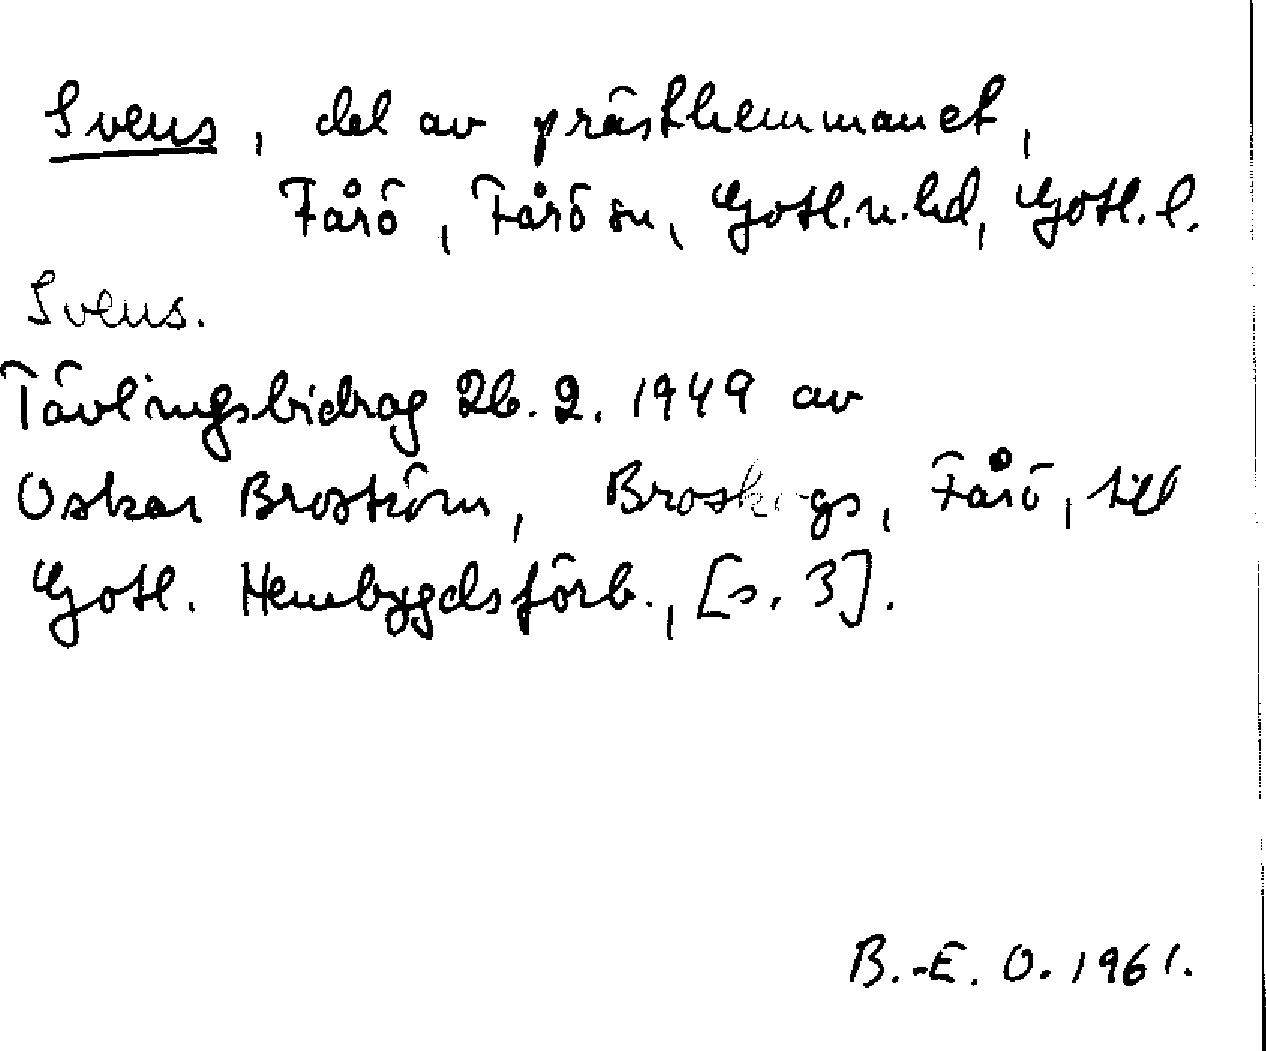 Svens, del av prästhemmanet,
Fårö, Fårö sn, Gotl.n.hd, Gotl.l.
Svens.
Tävlingsbidrag 26.2.1949 av
Oskar Broström, Broskogs, Fårö, till
Gotl. Hembygdsförb., [s. 3].
B.-E. O. 1961.